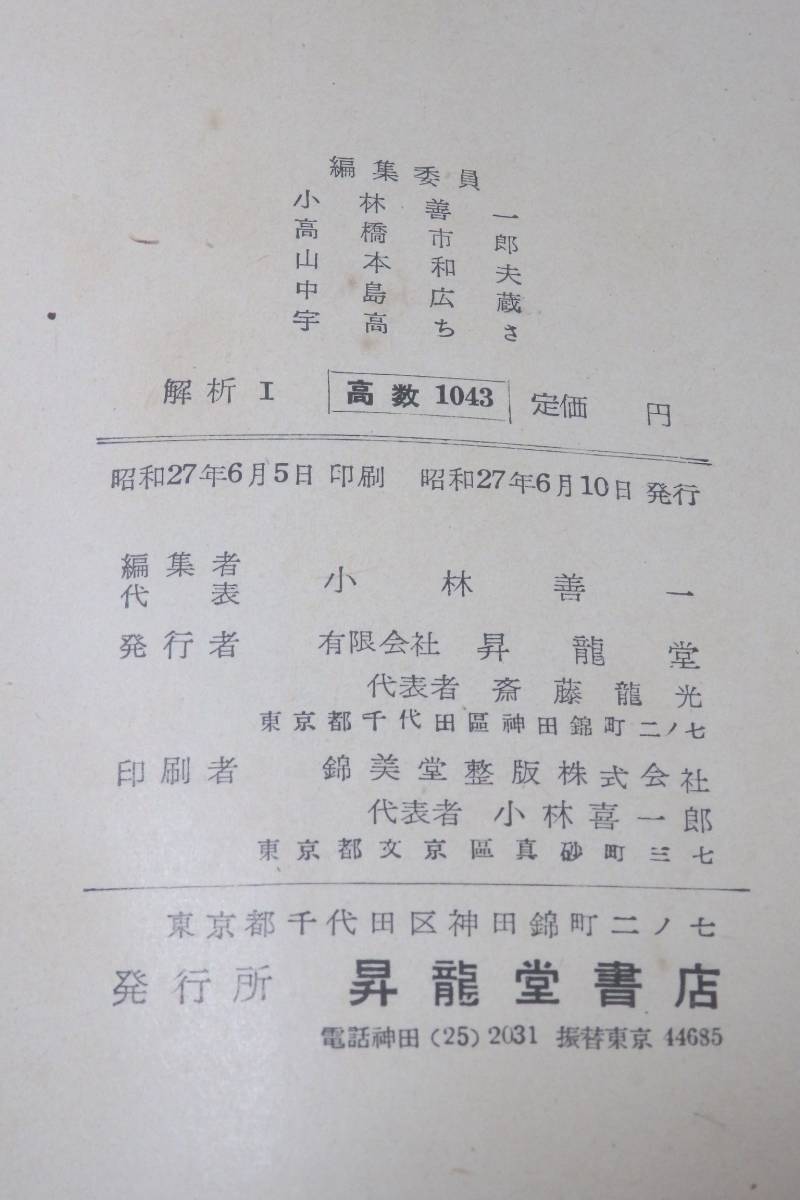 編集委員
小林善一
高橋市郎
山本和夫
中島広蔵
宇高ちさ
解析 I 高数 1043 定価 円
昭和27年6月5日 印刷 昭和27年6月10日 発行
編集者
代表 小林善一
発行者 有限会社 昇龍堂
代表者 斎藤龍光
東京都千代田區神田錦町二ノ七
印刷者 錦美堂整版株式会社
代表者 小林喜一郎
東京都文京區真砂町三七
東京都千代田区神田錦町二ノ七
発行所 昇龍堂書店
電話神田(25)2031 振替東京 44685